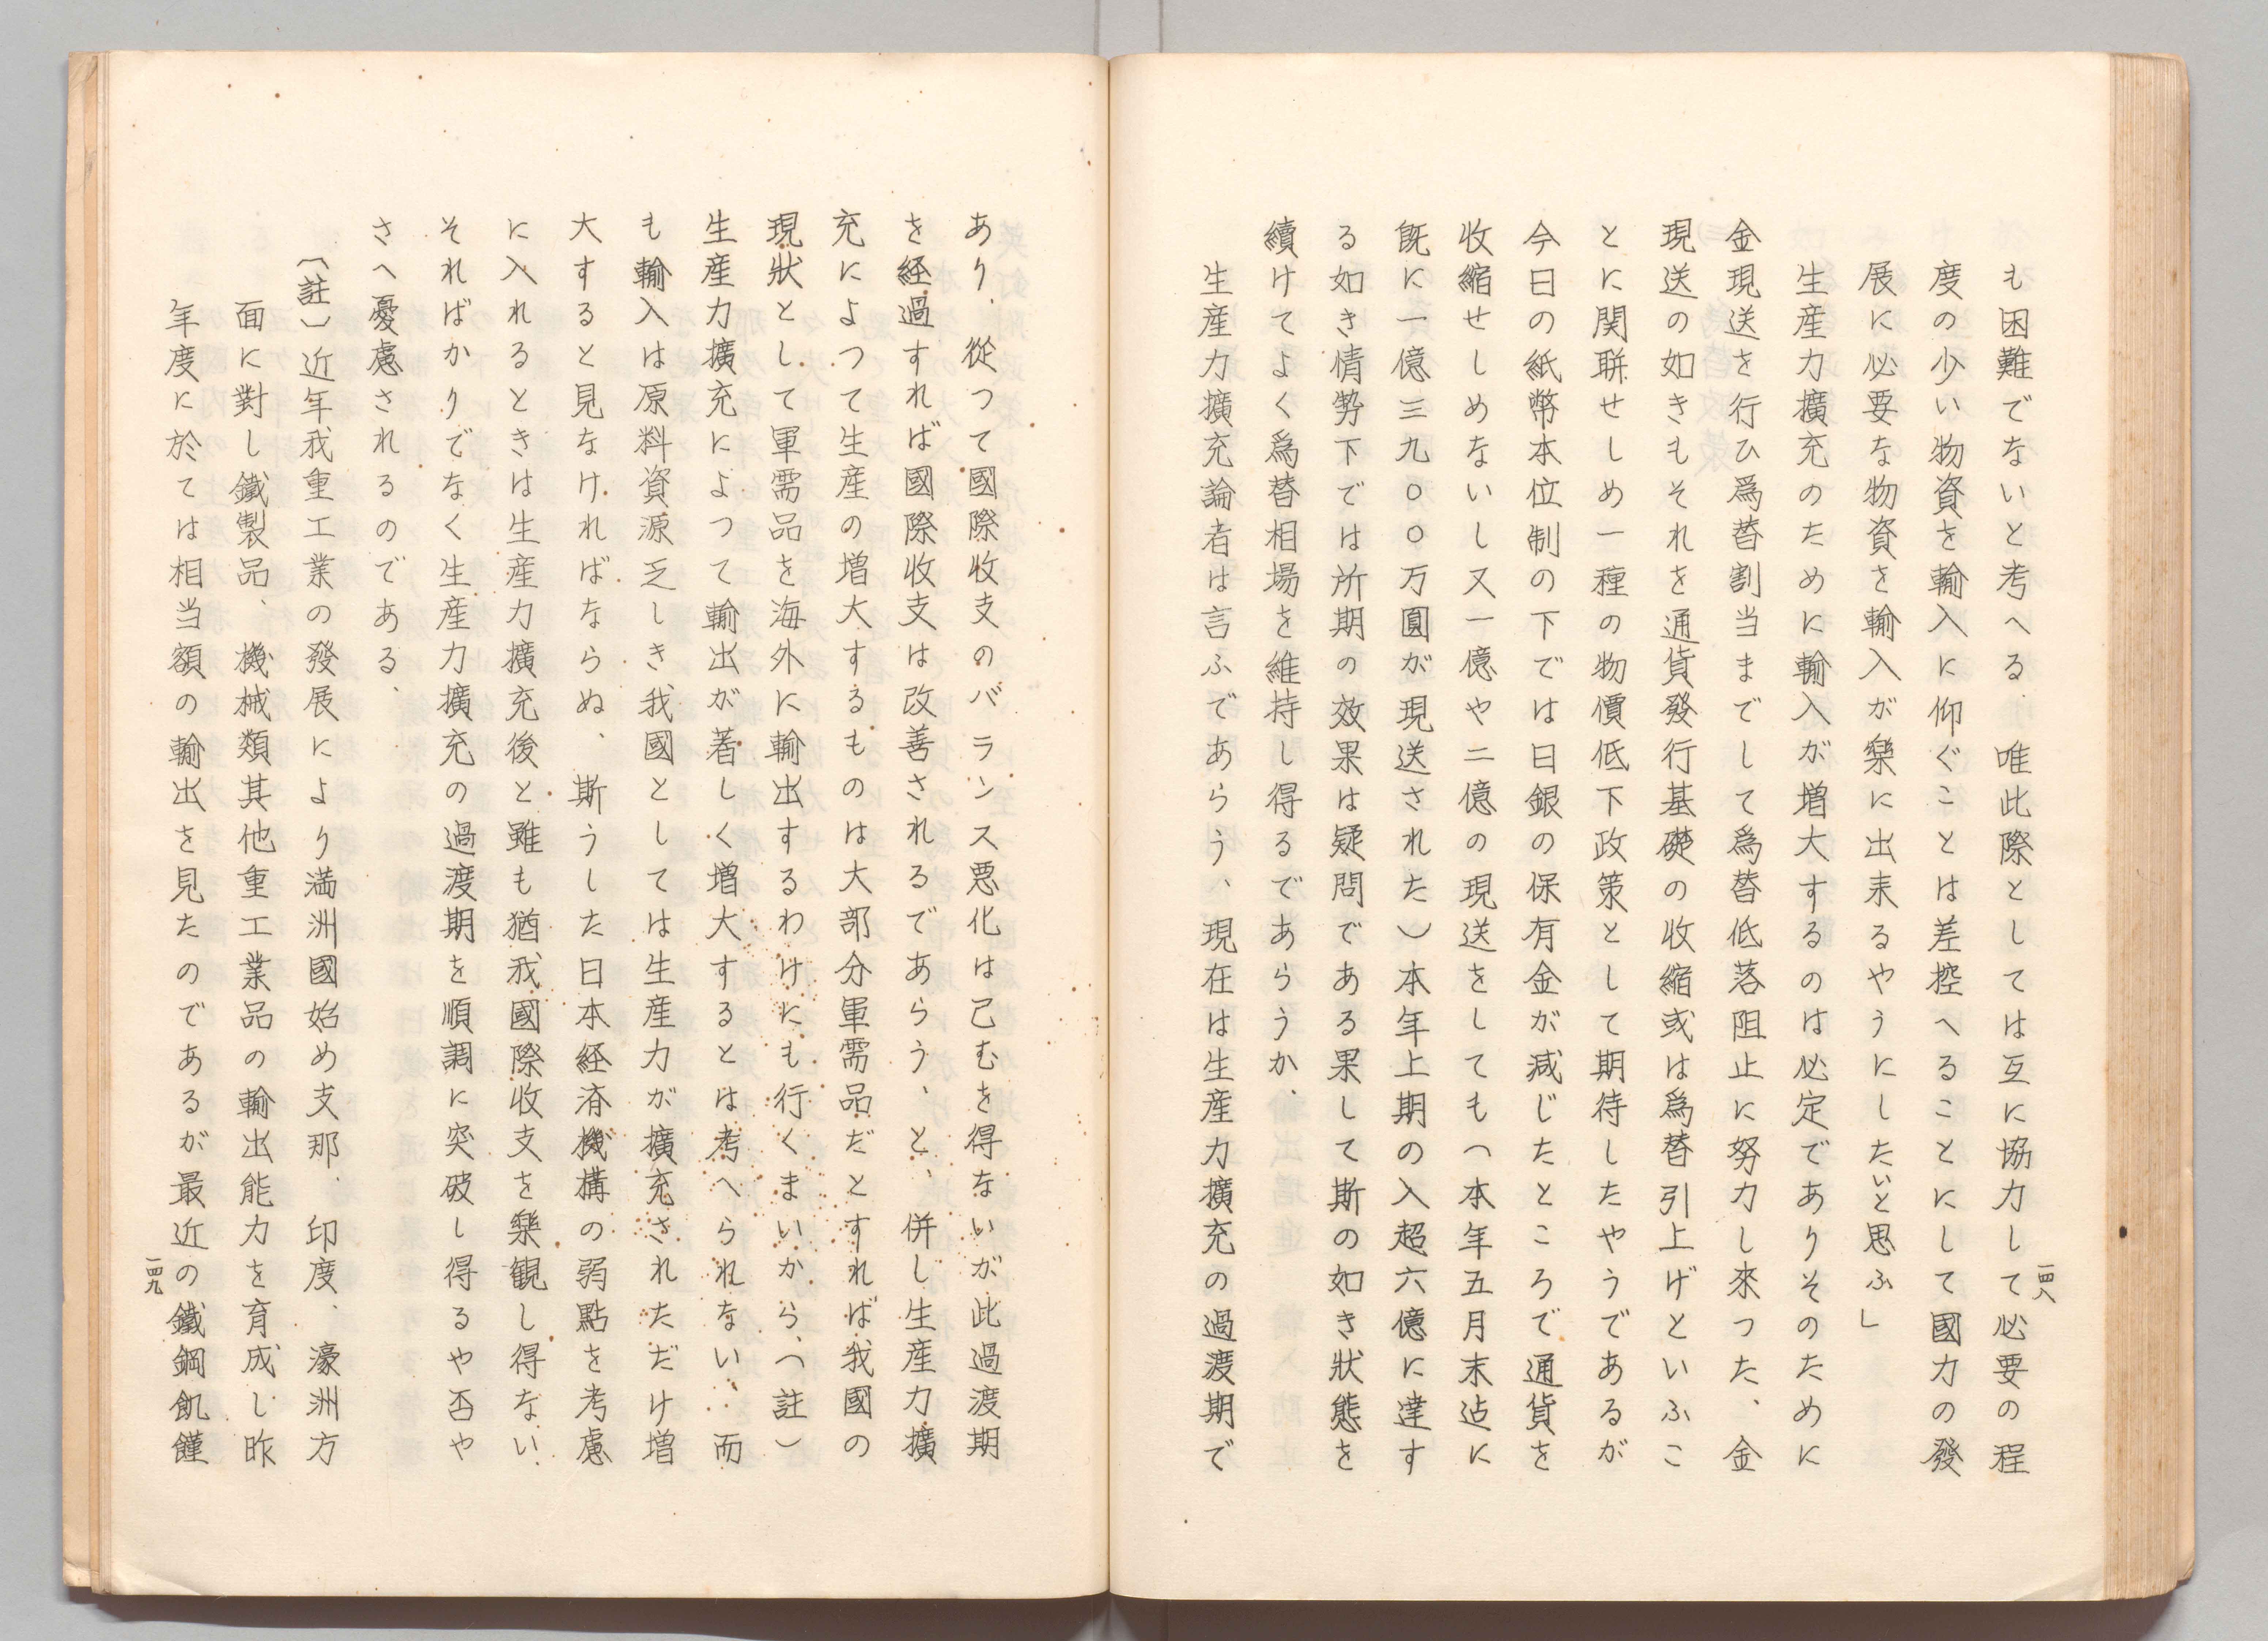 も困難でないと考へる、唯此際としては互に協力して必要の程
度の少い物資を輸入に仰ぐことは差控へることにして國力の發
展に必要な物資を輸入が樂に出来るやうにしたいと思ふ」
生産力擴充のために輸入が増大するのは必定でありそのために
金現送を行ひ爲替割当までして爲替低落阻止に努力し來つた、金
現送の如きもそれを通貨發行基礎の收縮或は爲替引上げといふこ
とに関聨せしめ一種の物價低下政策として期待したやうであるが
今日の紙幣本位制の下では日銀の保有金が減じたところで通貨を
收縮せしめないし又一億や二億の現送をしても（本年五月末迠に
既に一億三九〇〇万圓が現送された）本年上期の入超六億に達す
る如き情勢下では所期の效果は疑問である果して斯の如き狀態を
續けてよく爲替相場を維持し得るであらうか、
生産力擴充論者は言ふであらう、現在は生産力擴充の過渡期で
一四八
あり、從つて國際收支のバランス悪化は已むを得ないが此過渡期
を経過すれば國際收支は改善されるであらう、と、併し生産力擴
充によつて生産の増大するものは大部分軍需品だとすれば我國の
現狀として軍需品を海外に輸出するわけにも行くまいから、（註）
生産力擴充によつて輸出が著しく増大するとは考へられない、而
も輸入は原料資源乏しき我國としては生産力が擴充されただけ増
大すると見なければならぬ、斯うした日本経済機構の弱點を考慮
に入れるときは生産力擴充後と雖も猶我國際收支を樂観し得ない、
そればかりでなく生産力擴充の過渡期を順調に突破し得るや否や
さへ憂慮されるのである、
〔註〕近年我重工業の發展により満洲國始め支那、印度、濠洲方
面に對し鐵製品、機械類其他重工業品の輸出能力を育成し昨
年度に於ては相当額の輸出を見たのであるが最近の鐵鋼飢饉
一四九